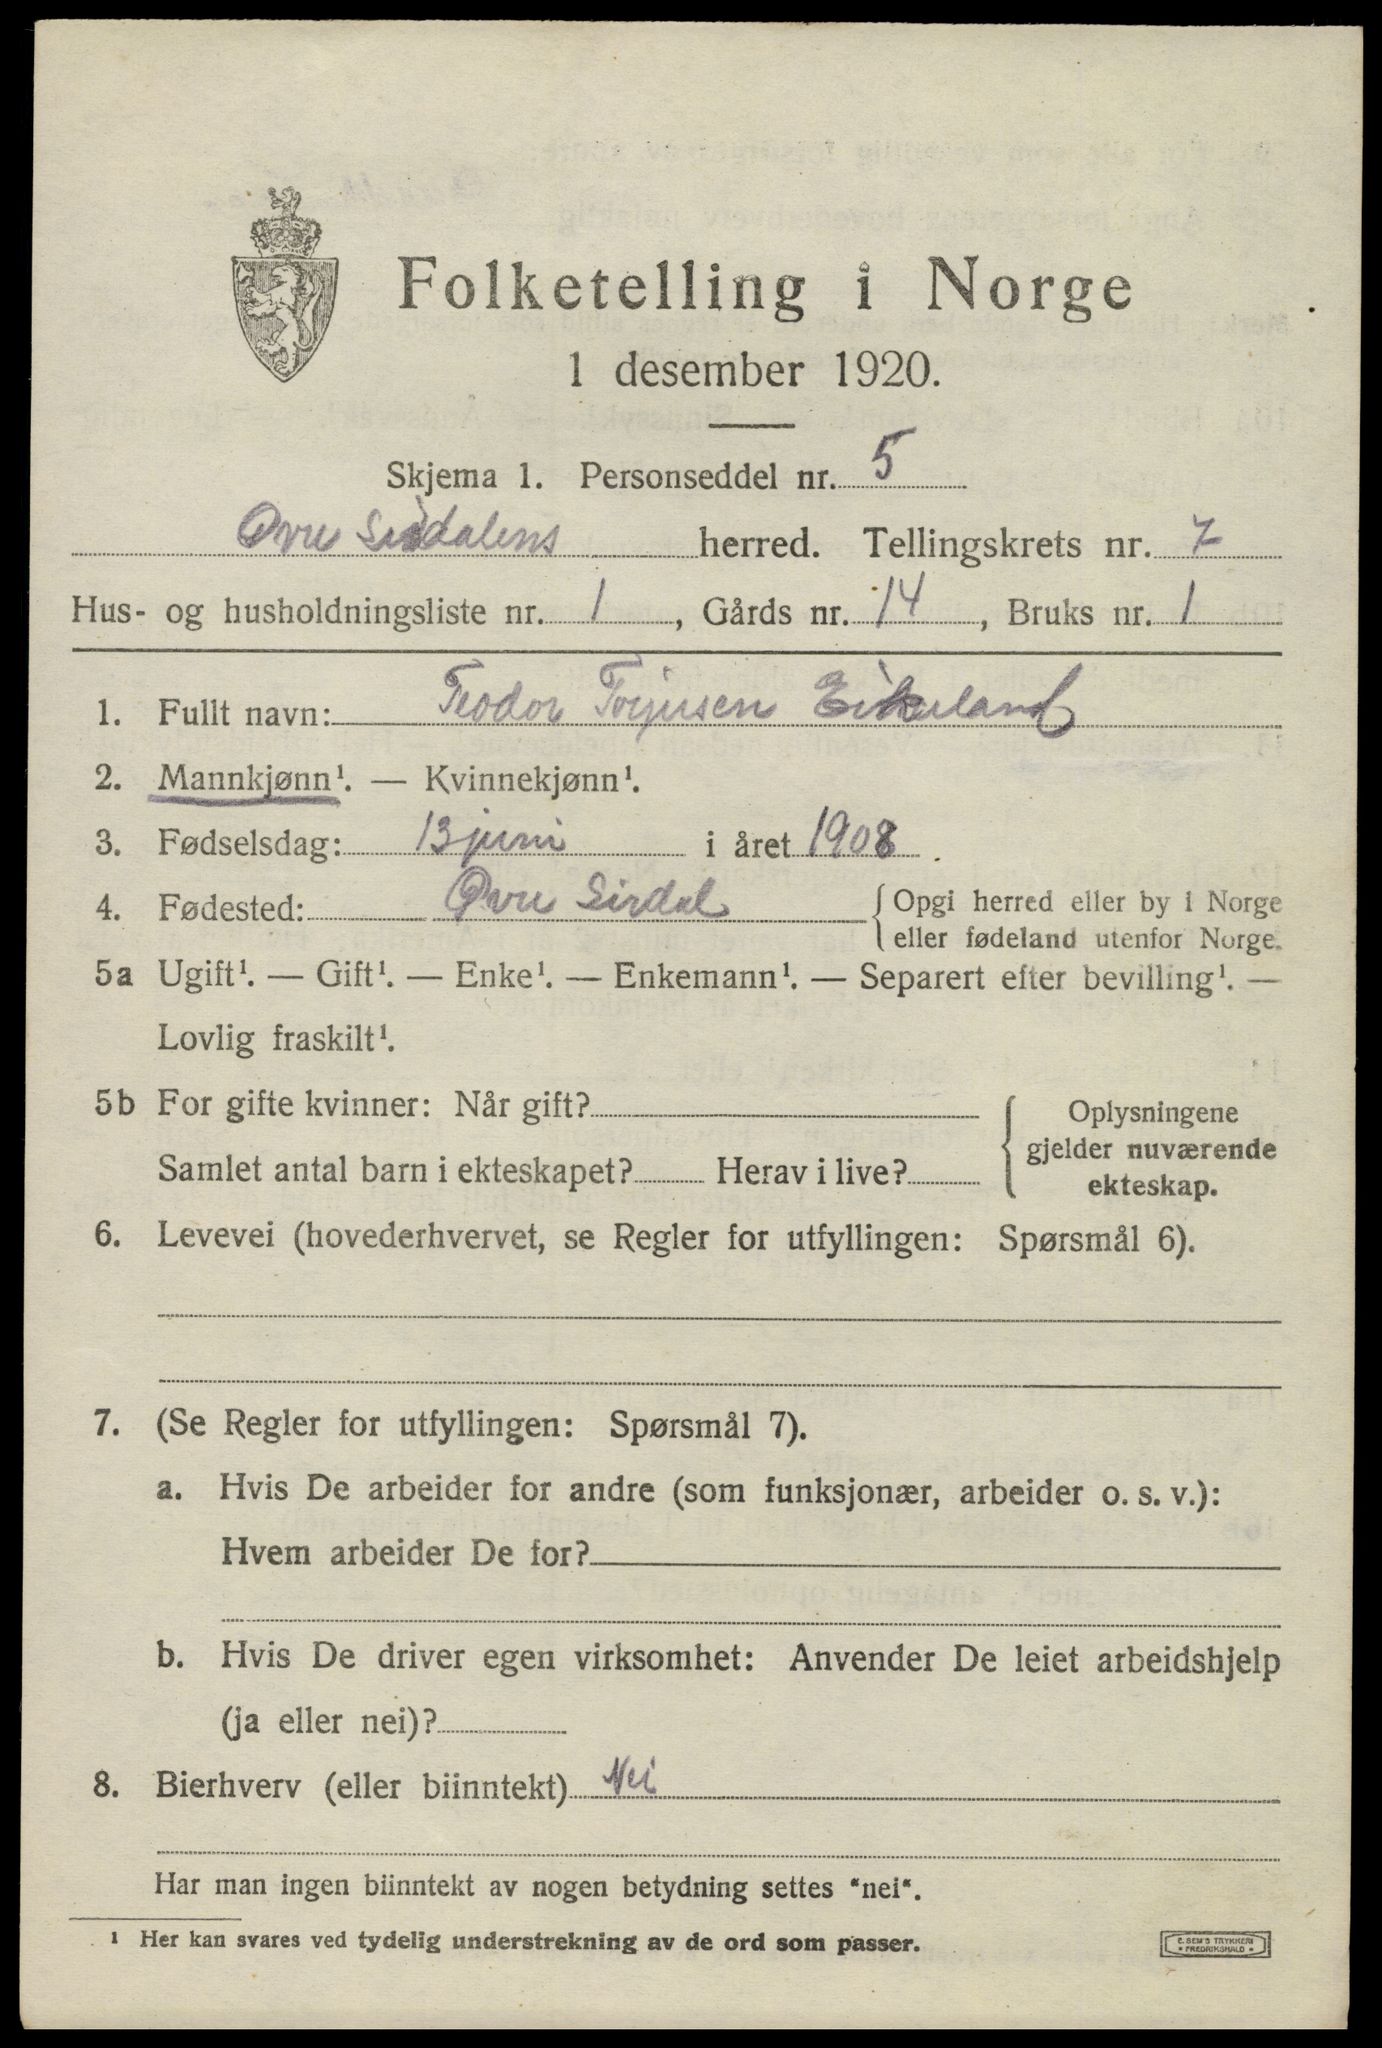 Folketelling i Norge
1 desember 1920.
Skjema 1. Personseddel nr. 5
Øvre Sirdalens herred. Tellingskrets nr. 7
Hus- og husholdningsliste nr. 1, Gårds nr. 14, Bruks nr. 1
1. Fullt navn: Teodor Torjusen Eikeland
2. Mannkjønn¹. — Kvinnekjønn¹.
3. Fødselsdag: 13 juni i året 1908.
4. Fødested: Øvre Sirdal { Opgi herred eller by i Norge
eller fødeland utenfor Norge.
5a Ugift¹. — Gift¹. — Enke¹. — Enkemann¹. — Separert efter bevilling¹. —
Lovlig fraskilt¹.
5b For gifte kvinner: Når gift?
Samlet antal barn i ekteskapet? Herav i live?
Oplysningene
gjelder nuværende
ekteskap.
6. Levevei (hovederhvervet, se Regler for utfyllingen: Spørsmål 6).
7. (Se Regler for utfyllingen: Spørsmål 7).
a. Hvis De arbeider for andre (som funksjonær, arbeider o. s. v.):
Hvem arbeider De for?
b. Hvis De driver egen virksomhet: Anvender De leiet arbeidshjelp
(ja eller nei)?
8. Bierhverv (eller biinntekt) Nei
Har man ingen biinntekt av nogen betydning settes "nei".
¹ Her kan svares ved tydelig understrekning av de ord som passer.
E. SEM'S TRYKKERI
• FREDRIKSHALD •